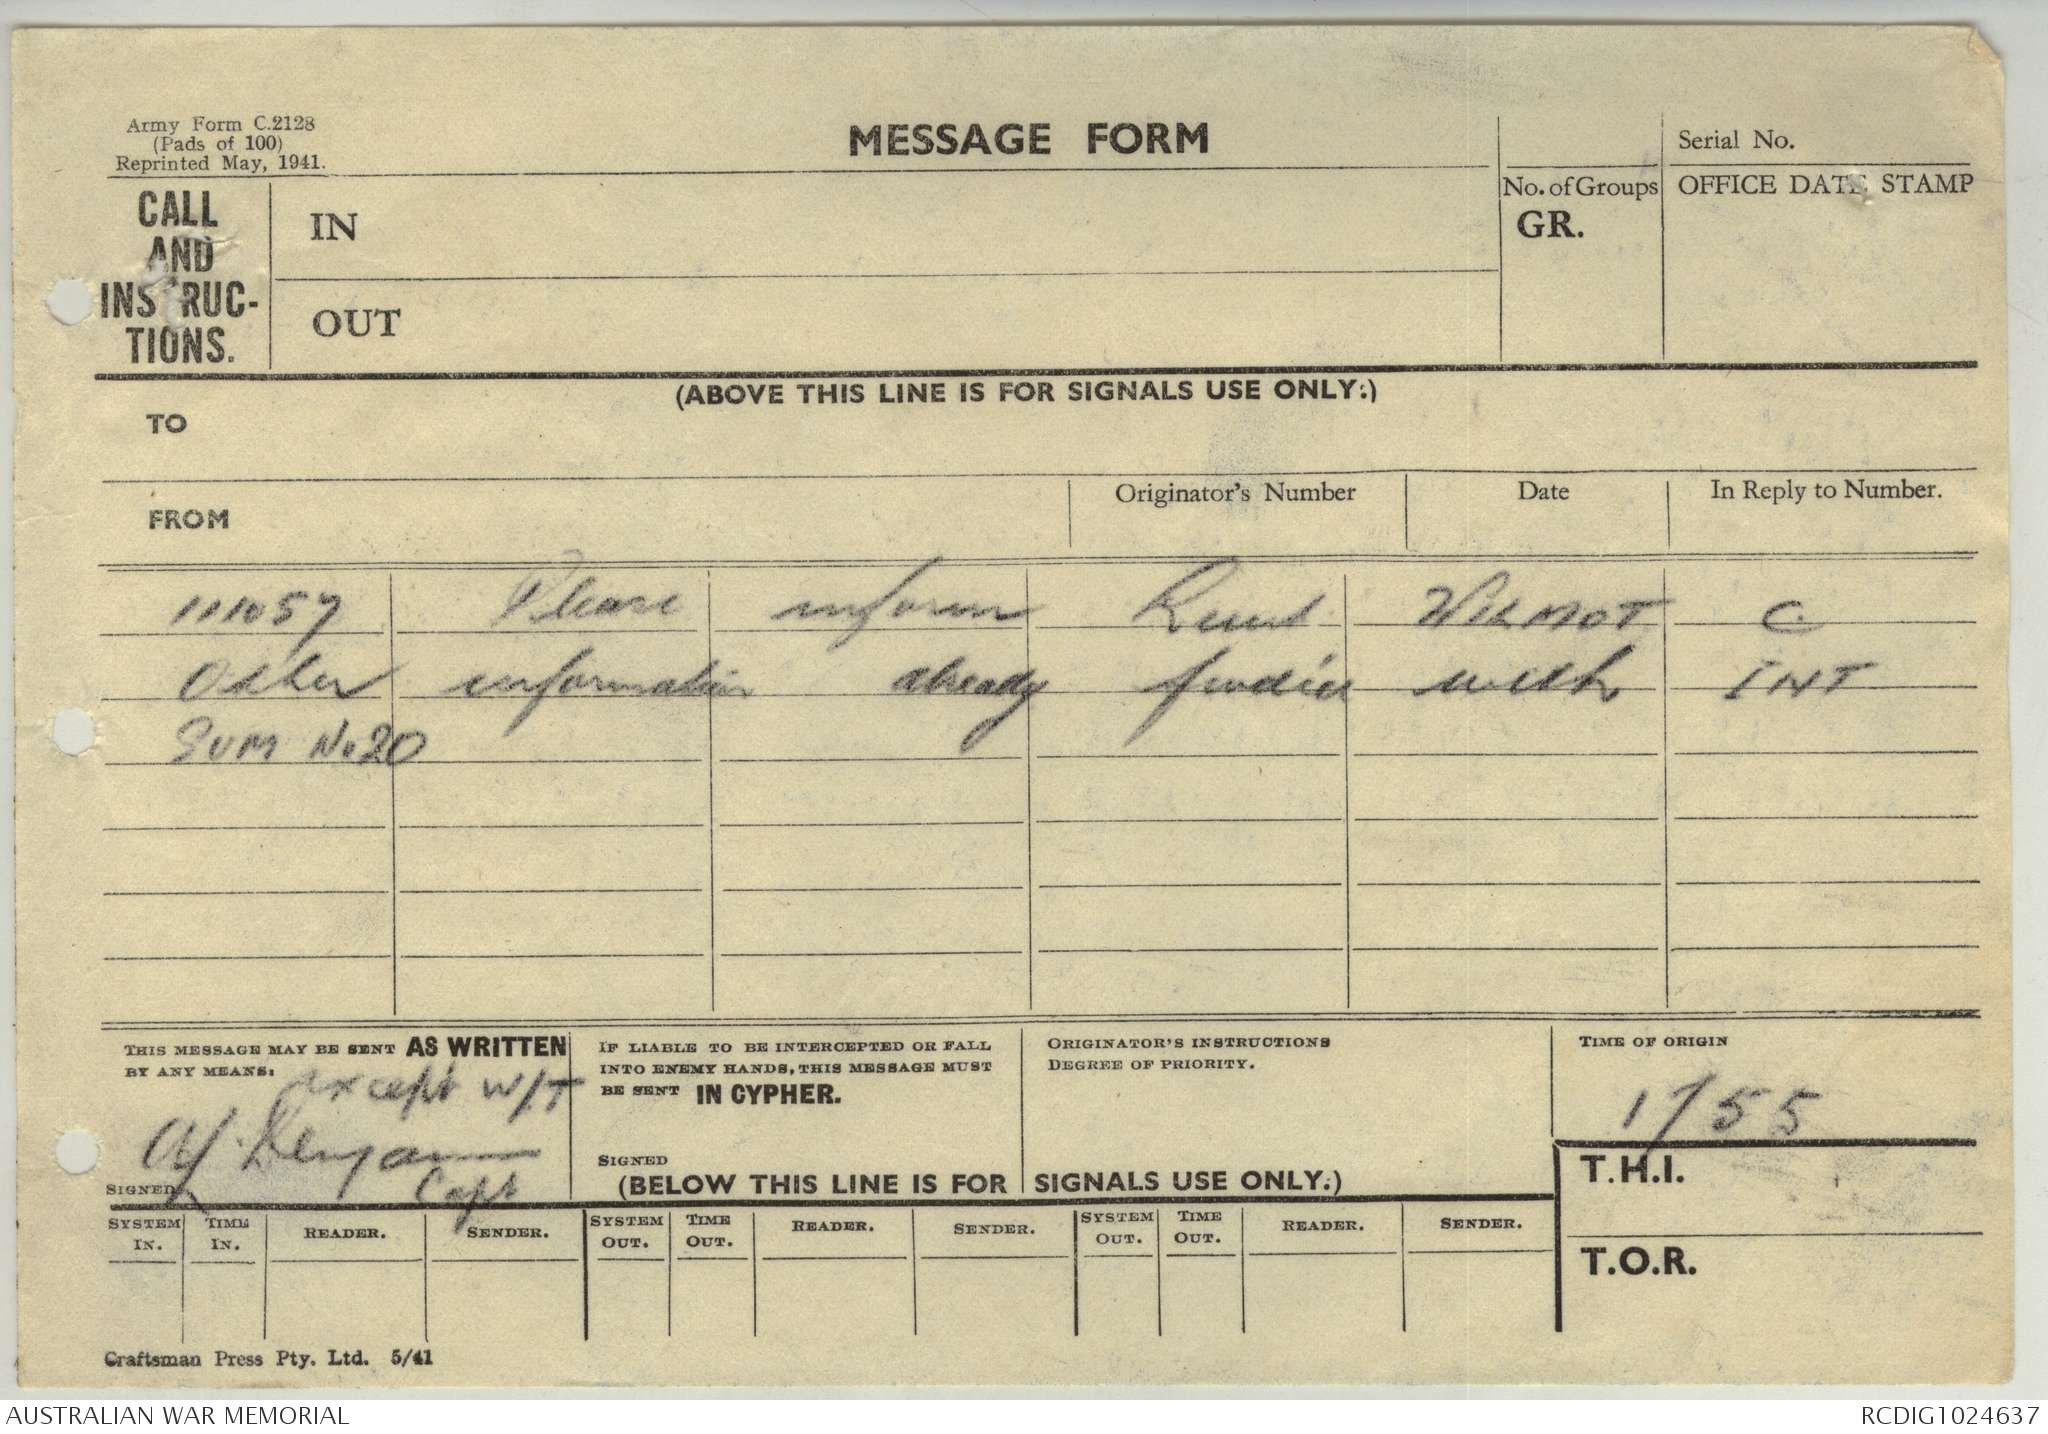 Army Form C.2128
(Pads of 100)
Reprinted May, 1941.
MESSAGE FORM
Serial No.
CALL
AND
INSTRUC-
TIONS.
IN
OUT
No. of Groups
GR.
OFFICE DATE STAMP
(ABOVE THIS LINE IS FOR SIGNALS USE ONLY.)
TO
FROM
Originator's Number
Date
In Reply to Number.
111057 Please inform Lieut WILMOT C
Other information already with INT
SUM No 20
THIS MESSAGE MAY BE SENT AS WRITTEN
BY ANY MEANS:
except W/T
Benjamin
Capt
SIGNED
IF LIABLE TO BE INTERCEPTED OR FALL
INTO ENEMY HANDS, THIS MESSAGE MUST
BE SENT IN CYPHER.
SIGNED
ORIGINATOR'S INSTRUCTIONS
DEGREE OF PRIORITY.
TIME OF ORIGIN
1755
(BELOW THIS LINE IS FOR SIGNALS USE ONLY.)
T.H.I.
T.O.R.
SYSTEM IN. TIME IN. READER. SENDER. SYSTEM OUT. TIME OUT. READER. SENDER. SYSTEM OUT. TIME OUT. READER. SENDER.
Craftsman Press Pty. Ltd. 5/41
AUSTRALIAN WAR MEMORIAL
RCDIG1024637